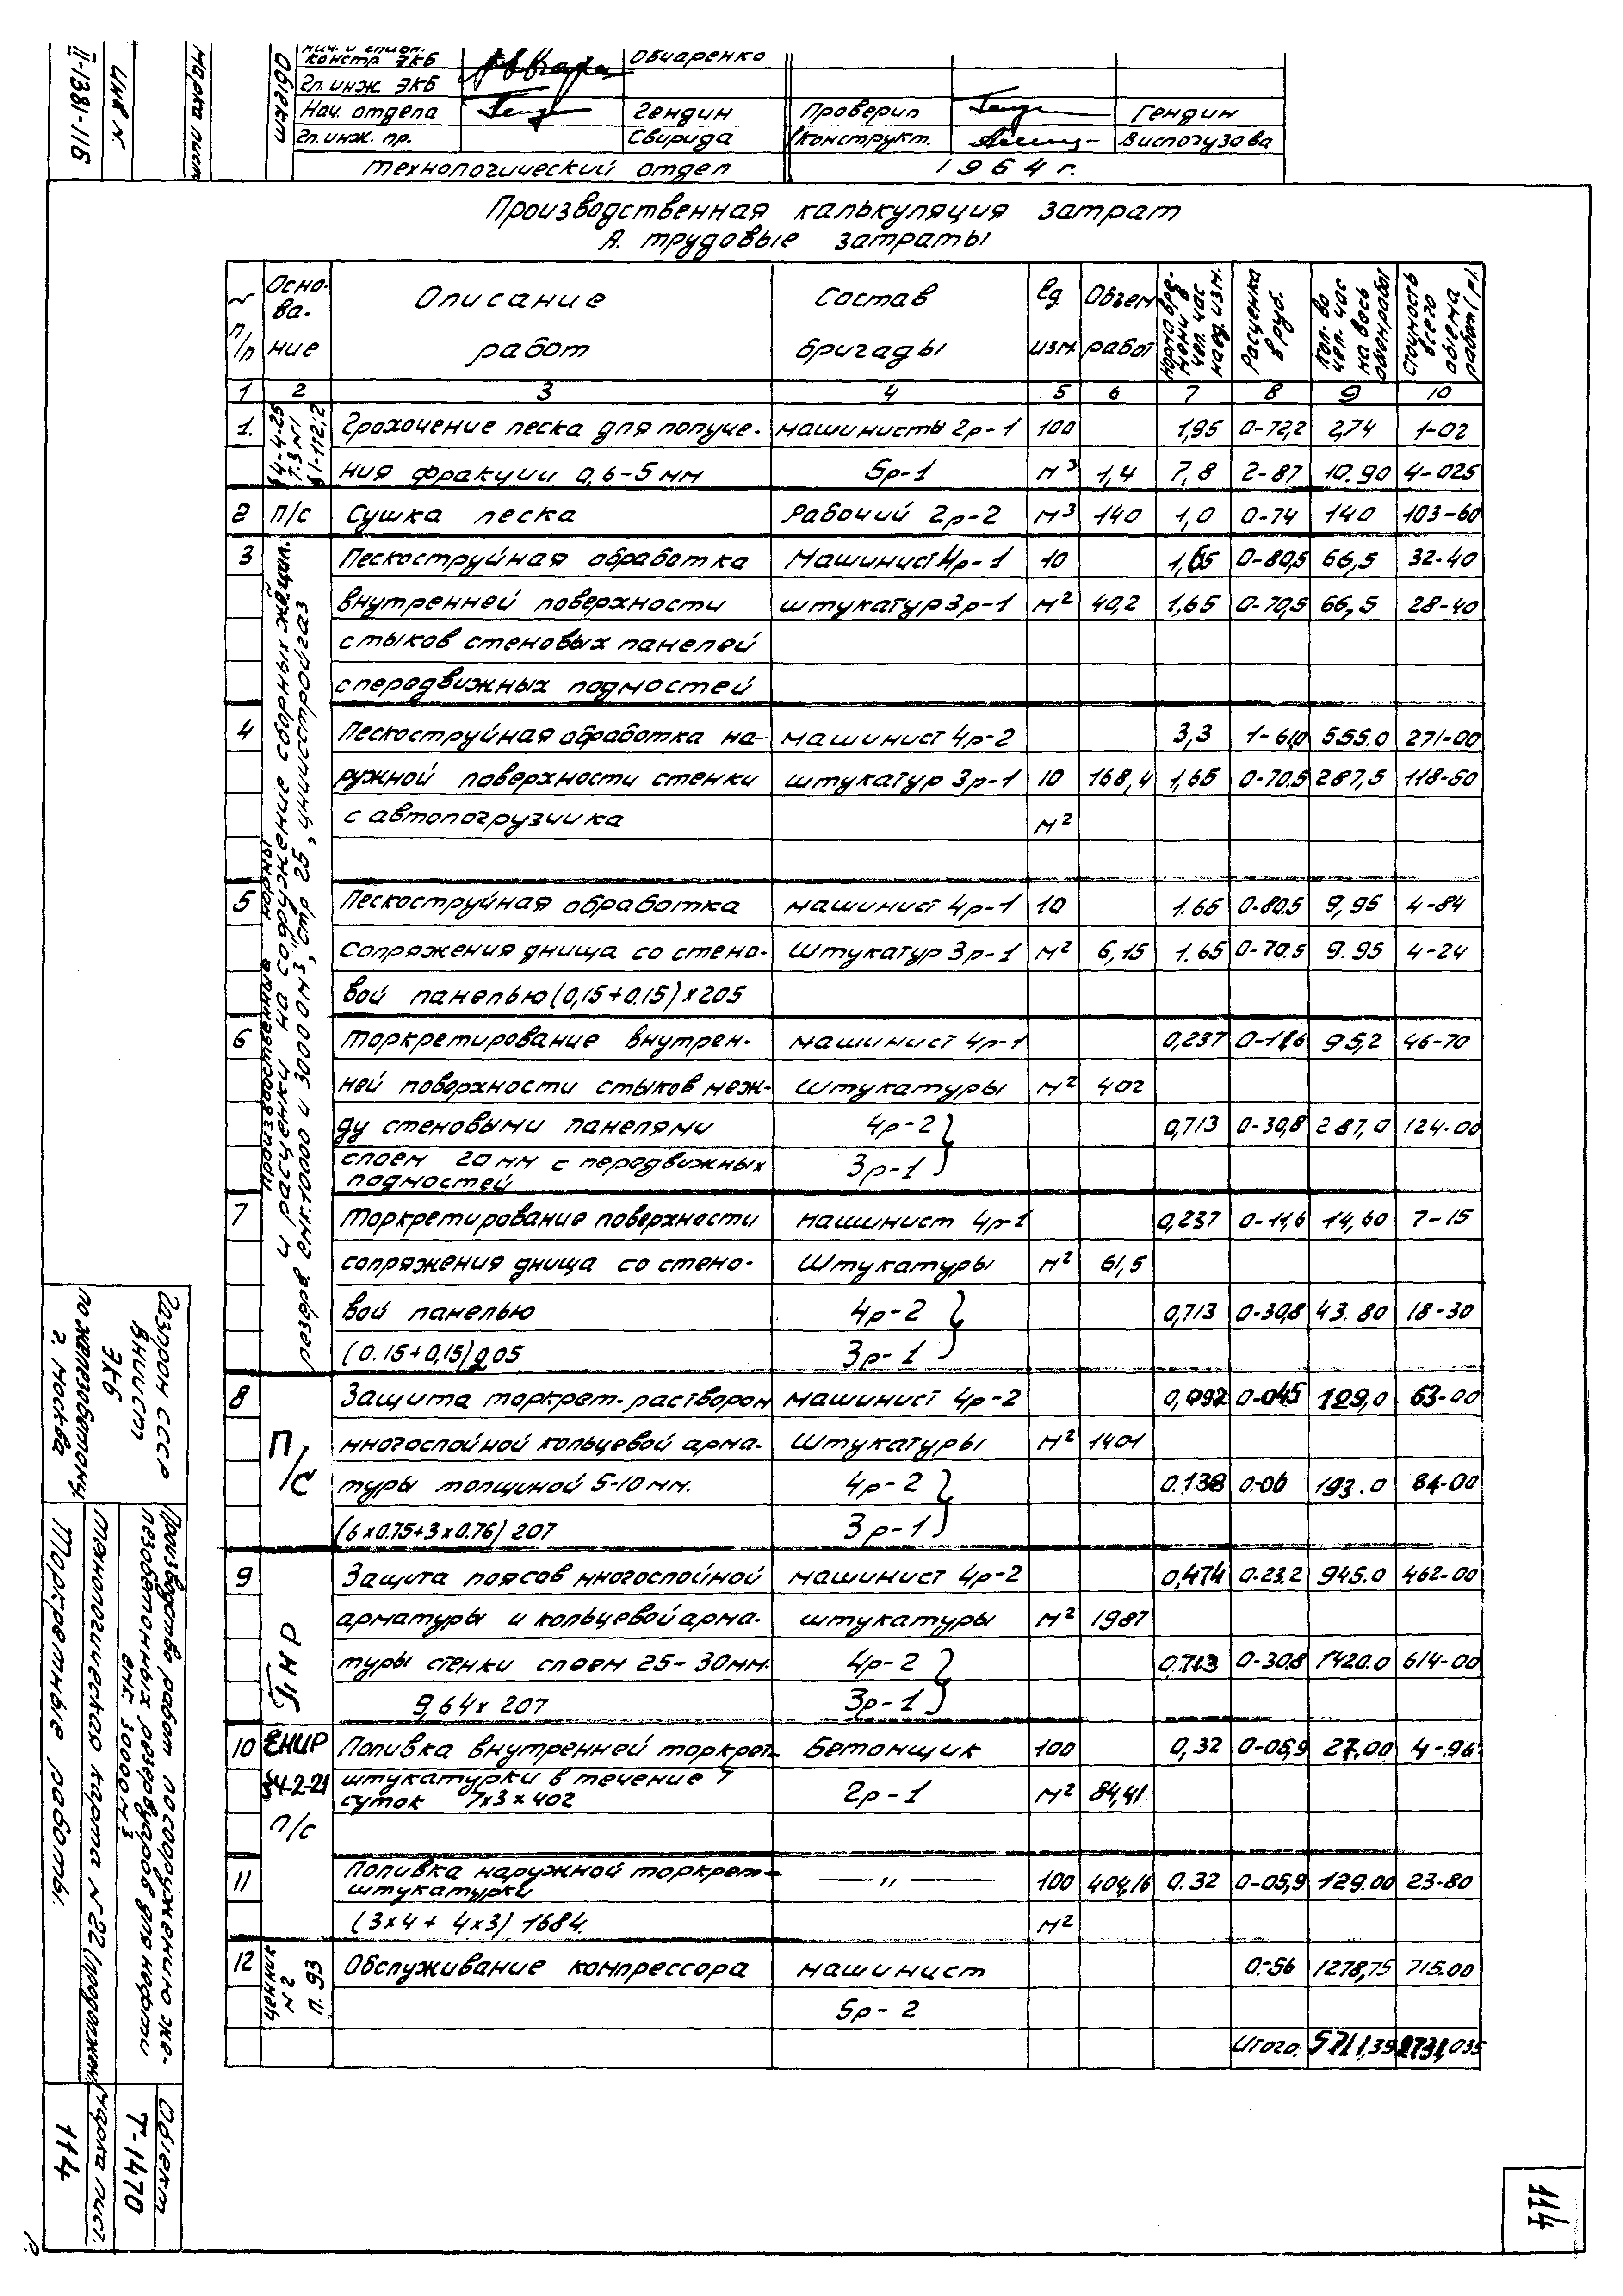 II-1381-116
инв N.
марка лист
шасадо
нач. и спцол.
констр ЭКБ
Овчаренко
Гл. инж ЭКБ
Нач. отдела Гендин Проверил Гендин
Гл. инж. пр. Свирида Конструкт. Виспогузова
технологический отдел 1964 г.
Производственная калькуляция затрат
А. трудовые затраты
N п/п
Осно-
ва-
ние
Описание
работ
Состав
бригады
Ед.
изм.
Объем
работ
норма вре-
мени в
чел. час
на ед. изм.
Расценка
в руб.
Кол-во
чел. час
на весь
объем работ
Стоимость
всего
объема
работ (р.)
1 2 3 4 5 6 7 8 9 10
1. § 4-4-25 т. 3 N1 § 1-11 2;2
Грохочение песка для получе- машинисты 2р-1 100 1,95 0-72,2 2,74 1-02
ния фракции 0,6-5 мм 5р-1 м³ 1,4 7,8 2-87 10.90 4-025
2 П/С Сушка песка Рабочий 2р-2 м³ 140 1,0 0-74 140 103-60
производственные нормы
и расценки на сооружение сборных ж/б цил.
резерв. емк. 10000 и 30000 м³, стр 25, ЦНИИСТРОЙГАЗ
3 Пескоструйная обработка Машинист 4р-1 10 1,65 0-80,5 66,5 32-40
внутренней поверхности штукатур 3р-1 м² 40,2 1,65 0-70,5 66,5 28-40
стыков стеновых панелей
с передвижных подмостей
4 Пескоструйная обработка на- машинист 4р-2 3,3 1-61,0 555.0 271-00
ружной поверхности стенки штукатур 3р-1 10 168,4 1,65 0-70.5 287,5 118-50
с автопогрузчика м²
5 Пескоструйная обработка машинист 4р-1 10 1.65 0-80.5 9,95 4-84
сопряжения днища со стено- Штукатур 3р-1 м² 6,15 1.65 0-70.5 9.95 4-24
вой панелью (0,15+0.15)х205
6 Торкретирование внутрен- машинист 4р-1 0,237 0-11,6 95,2 46-70
ней поверхности стыков меж- Штукатуры м² 402
ду стеновыми панелями 4р-2 } 0,713 0-30,8 287,0 124-00
слоем 20 мм с передвижных 3р-1
подмостей
7 Торкретирование поверхности машинист 4р-1 0,237 0-11,6 14,60 7-15
сопряжения днища со стено- Штукатуры м² 61,5
вой панелью 4р-2 } 0,713 0-30,8 43.80 18-30
(0.15+0,15)205 3р-1
8 П/С Защита торкрет-раствором машинист 4р-2 0,092 0-04,5 129,0 63-00
многослойной кольцевой арма- Штукатуры м² 1401
туры толщиной 5-10 мм. 4р-2 } 0.138 0-06 193.0 84-00
(6х0.75+3х0.76) 207 3р-1
9 ПНР Защита поясов многослойной машинист 4р-2 0,474 0-23.2 945.0 462-00
арматуры и кольцевой арма- штукатуры м² 1987
туры стенки слоем 25-30 мм. 4р-2 } 0.713 0-30.8 1420.0 614-00
9,64х207 3р-1
10 ЕНИР Поливка внутренней торкрет- Бетонщик 100 0,32 0-05,9 27.00 4-96
§4-2-21 штукатурки в течение 7 2р-1 м² 84,41
суток 7х3х402
П/С
11 Поливка наружной торкрет- —— " —— 100 404,16 0.32 0-05,9 129.00 23-80
штукатурки
(3х4 + 4х3) 1684. м²
12 ценник N 2 п. 93 Обслуживание компрессора машинист 0-56 1278,75 715.00
5р-2
Итого: 5711,39 2731,035
Газпром СССР
ВНИИСТ
ЭКБ
по железобетону
г. Москва
Производство работ по сооружению же-
лезобетонных резервуаров для нефти
емк. 30000 м.3
технологическая карта N 22 (продолжен.)
Торкретные работы.
Объект
Т-1470
марка лист.
114
114
Р.